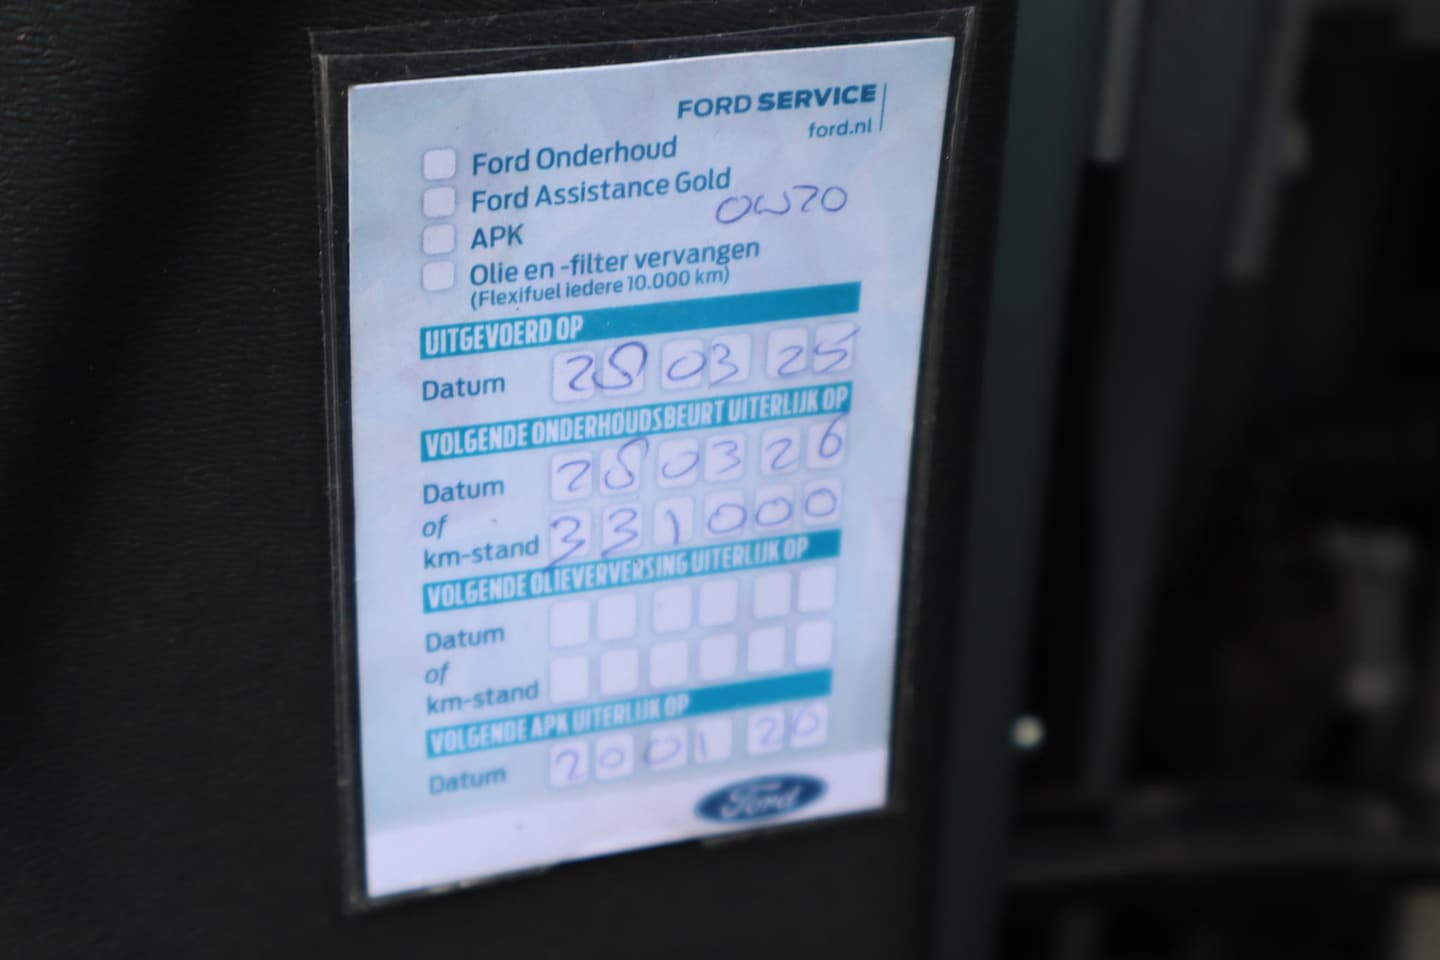 FORD SERVICE
ford.nl
Ford Onderhoud
Ford Assistance Gold
0W20
APK
Olie en -filter vervangen
(Flexifuel iedere 10.000 km)
UITGEVOERD OP
Datum 28 03 25
VOLGENDE ONDERHOUDSBEURT UITERLIJK OP
Datum 28 03 26
of
km-stand 331000
VOLGENDE OLIEVERVERSING UITERLIJK OP
Datum
of
km-stand
VOLGENDE APK UITERLIJK OP
Datum 20 01 20
Ford